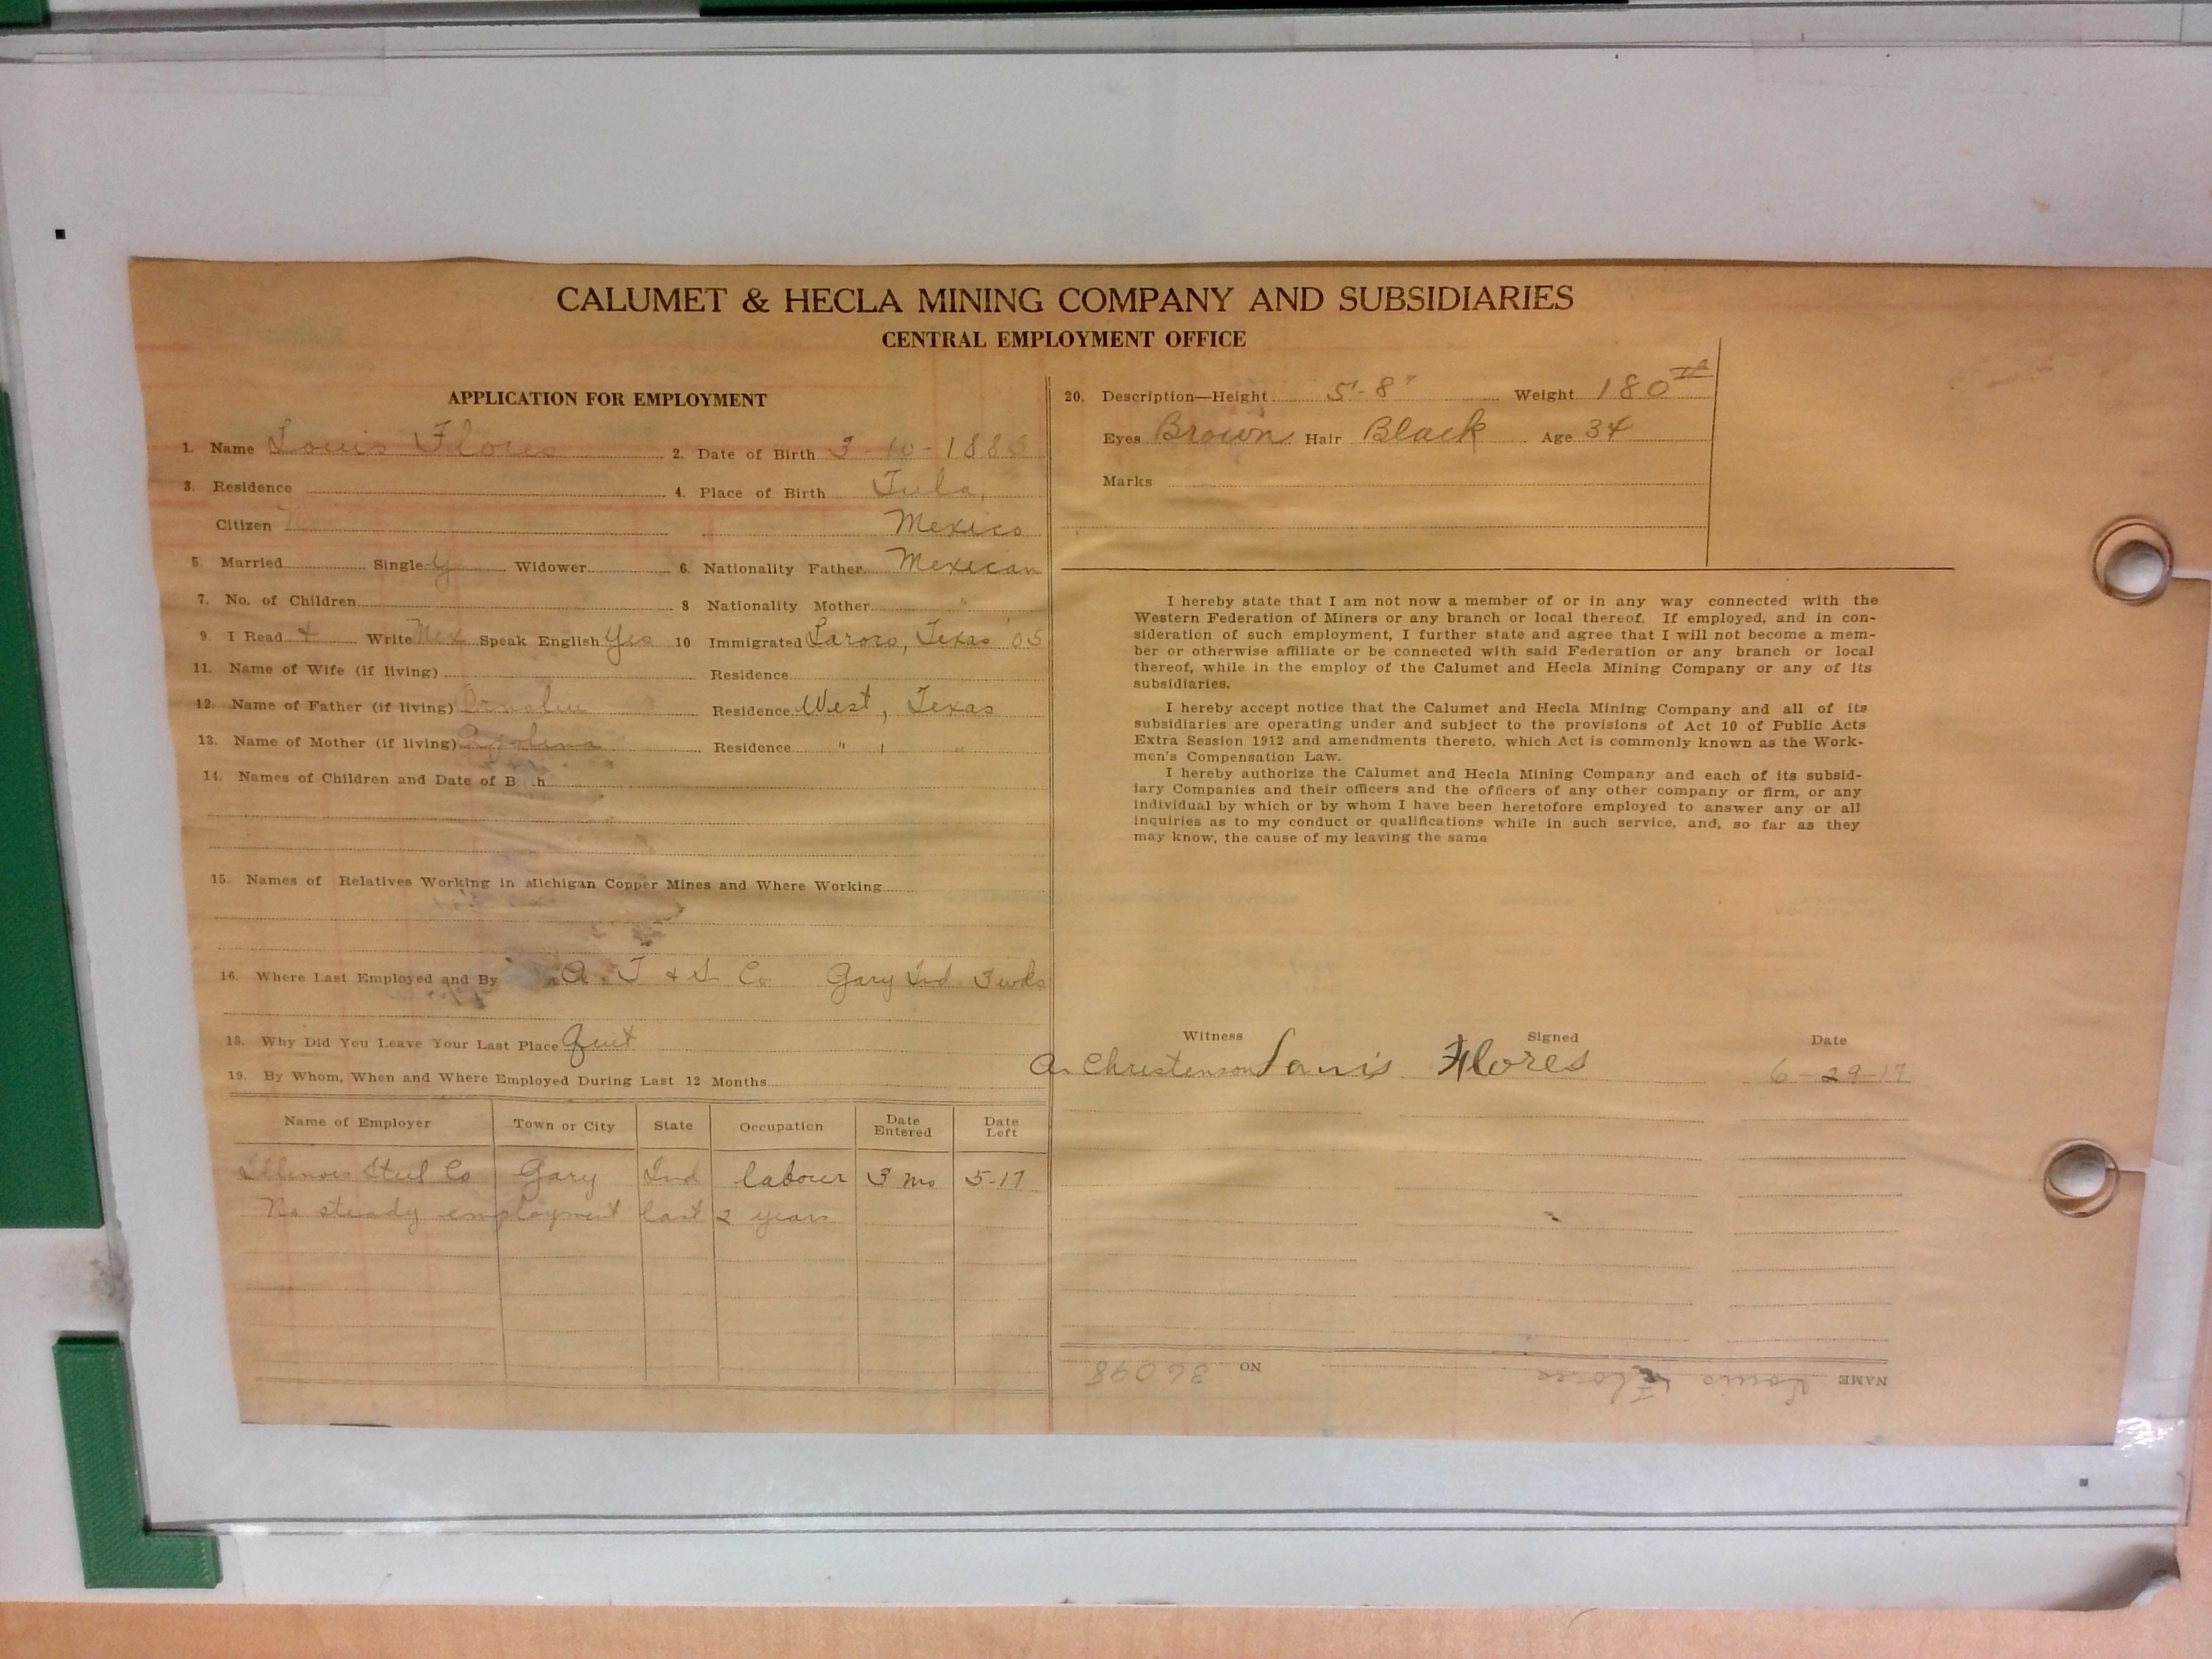 CALUMET & HECLA MINING COMPANY AND SUBSIDIARIES
CENTRAL EMPLOYMENT OFFICE
APPLICATION FOR EMPLOYMENT
1. Name Louis Flores 2. Date of Birth 3-10-1883
3. Residence 4. Place of Birth Tula,
Citizen Mexico
5. Married Single y Widower 6. Nationality Father Mexican
7. No. of Children 8 Nationality Mother "
9. I Read & Write Mex Speak English Yes 10 Immigrated Laroro, Texas '05
11. Name of Wife (if living) Residence
12. Name of Father (if living) Residence West, Texas
13. Name of Mother (if living) Residence " , "
14. Names of Children and Date of B h
15. Names of Relatives Working in Michigan Copper Mines and Where Working
16. Where Last Employed and By A. T & S Co Gary Ind 3 wks
18. Why Did You Leave Your Last Place Quit
19. By Whom, When and Where Employed During Last 12 Months
Name of Employer Town or City State Occupation Date Entered Date Left
Illinois Steel Co Gary Ind labour 3 mo 5-17
No steady employment last 2 years
20. Description—Height 5'-8" Weight 180
Eyes Brown Hair Black Age 34
Marks
I hereby state that I am not now a member of or in any way connected with the
Western Federation of Miners or any branch or local thereof. If employed, and in con-
sideration of such employment, I further state and agree that I will not become a mem-
ber or otherwise affiliate or be connected with said Federation or any branch or local
thereof, while in the employ of the Calumet and Hecla Mining Company or any of its
subsidiaries.
I hereby accept notice that the Calumet and Hecla Mining Company and all of its
subsidiaries are operating under and subject to the provisions of Act 10 of Public Acts
Extra Session 1912 and amendments thereto, which Act is commonly known as the Work-
men's Compensation Law.
I hereby authorize the Calumet and Hecla Mining Company and each of its subsid-
iary Companies and their officers and the officers of any other company or firm, or any
individual by which or by whom I have been heretofore employed to answer any or all
inquiries as to my conduct or qualifications while in such service, and, so far as they
may know, the cause of my leaving the same
Witness Signed Date
A. Christenson Louis Flores 6-29-17
NAME Louis Flores NO 36098